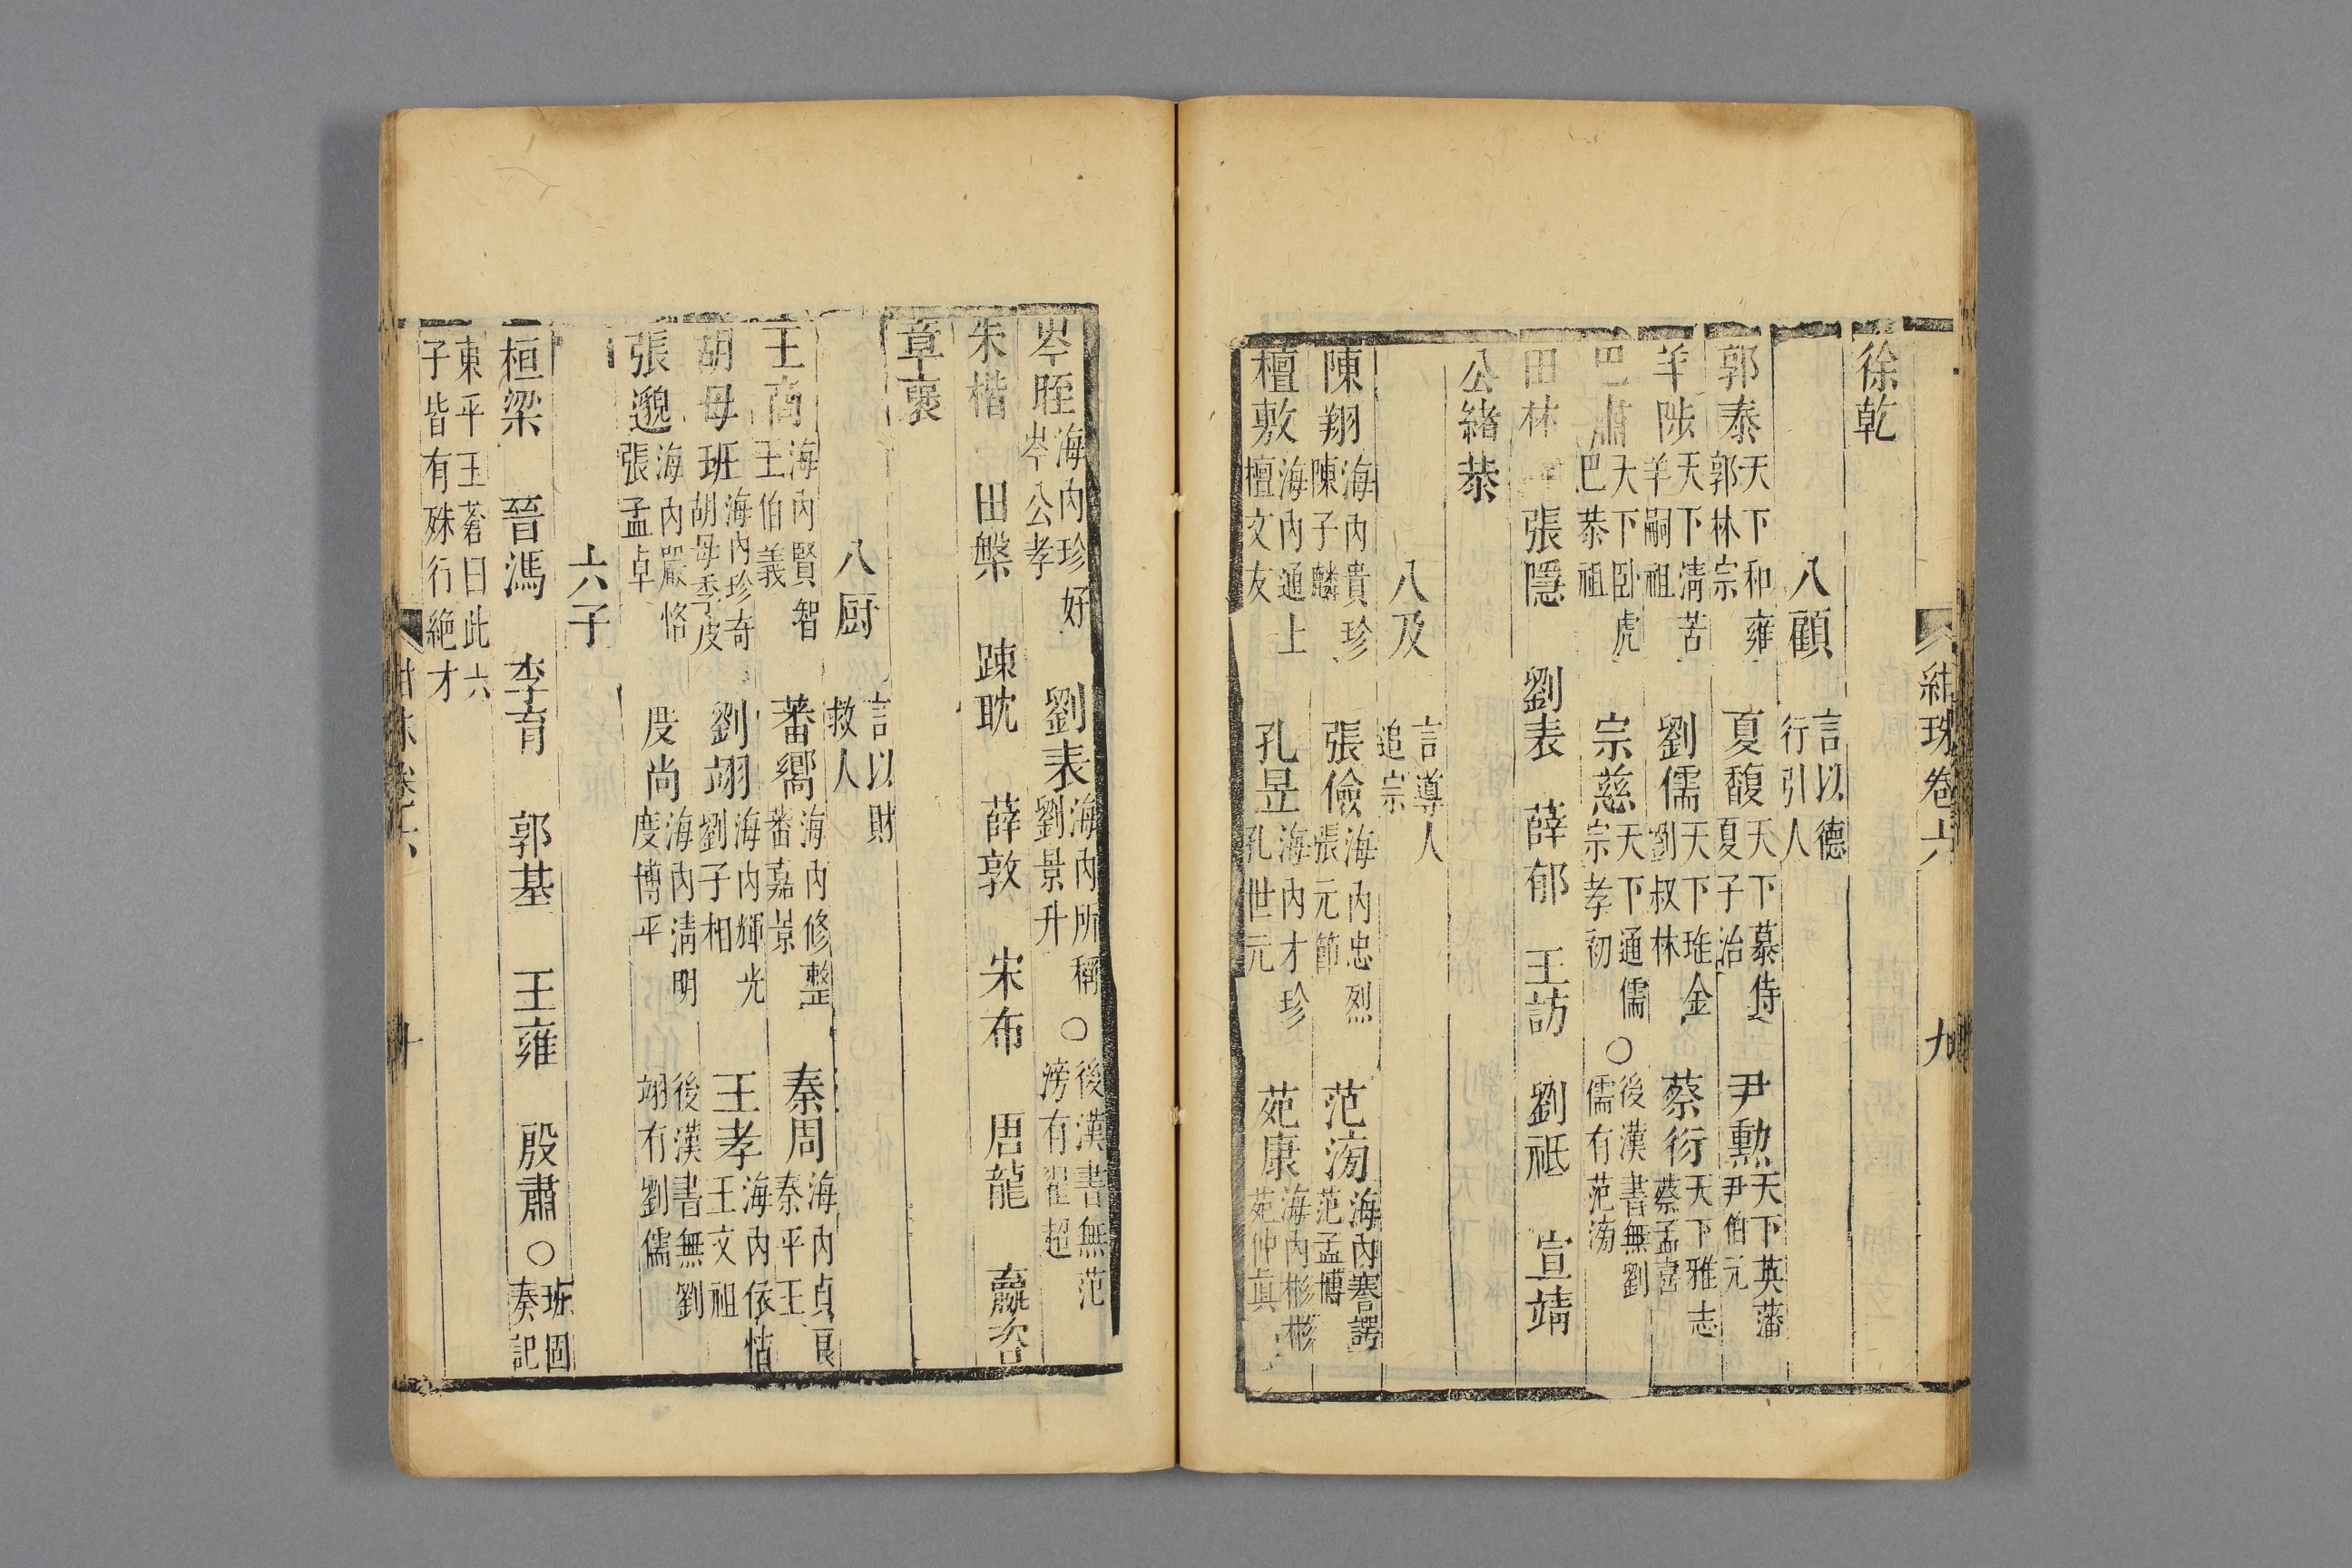 紺珠卷六 九
徐乾
八顧 言以德行引人
郭泰 天下和雍郭林宗 夏馥 天下慕侍夏子治 尹勳 天下英藩尹伯元
羊陟 天下清苦羊嗣祖 劉儒 天下珤金劉叔林 蔡衍 天下雅志蔡孟喜
巴肅 天下卧虎巴恭祖 宗慈 天下通儒宗孝初 ○後漢書無劉儒有范滂
田林 張隱 劉表 薛郁 王訪 劉祗 宣靖
公緒恭
八及 言導人追宗
陳翔 海内貴珍陳子麟 張儉 海内忠烈張元節 范滂 海内謇諤范孟博
檀敷 海内通士檀文友 孔昱 海内才珍孔世元 苑康 海内彬彬苑仲真
岑晊 海内珍好岑公孝 劉表 海内所稱劉景升 ○後漢書無范滂有翟超
朱楷 田槃 踈耽 薛敦 宋布 唐龍 嬴咨
章褒
八厨 言以財救人
王商 海内賢智王伯義 蕃嚮 海内修整蕃嘉景 秦周 海内貞良秦平王
胡母班 海内珍奇胡母季皮 劉翊 海内輝光劉子相 王孝 海内依怙王文祖
張邈 海内嚴恪張孟卓 度尚 海内清明度博平 後漢書無劉翊有劉儒
六子
桓梁 晉馮 李育 郭基 王雍 殷肅 ○班固奏記
東平王蒼曰此六子皆有殊行絶才